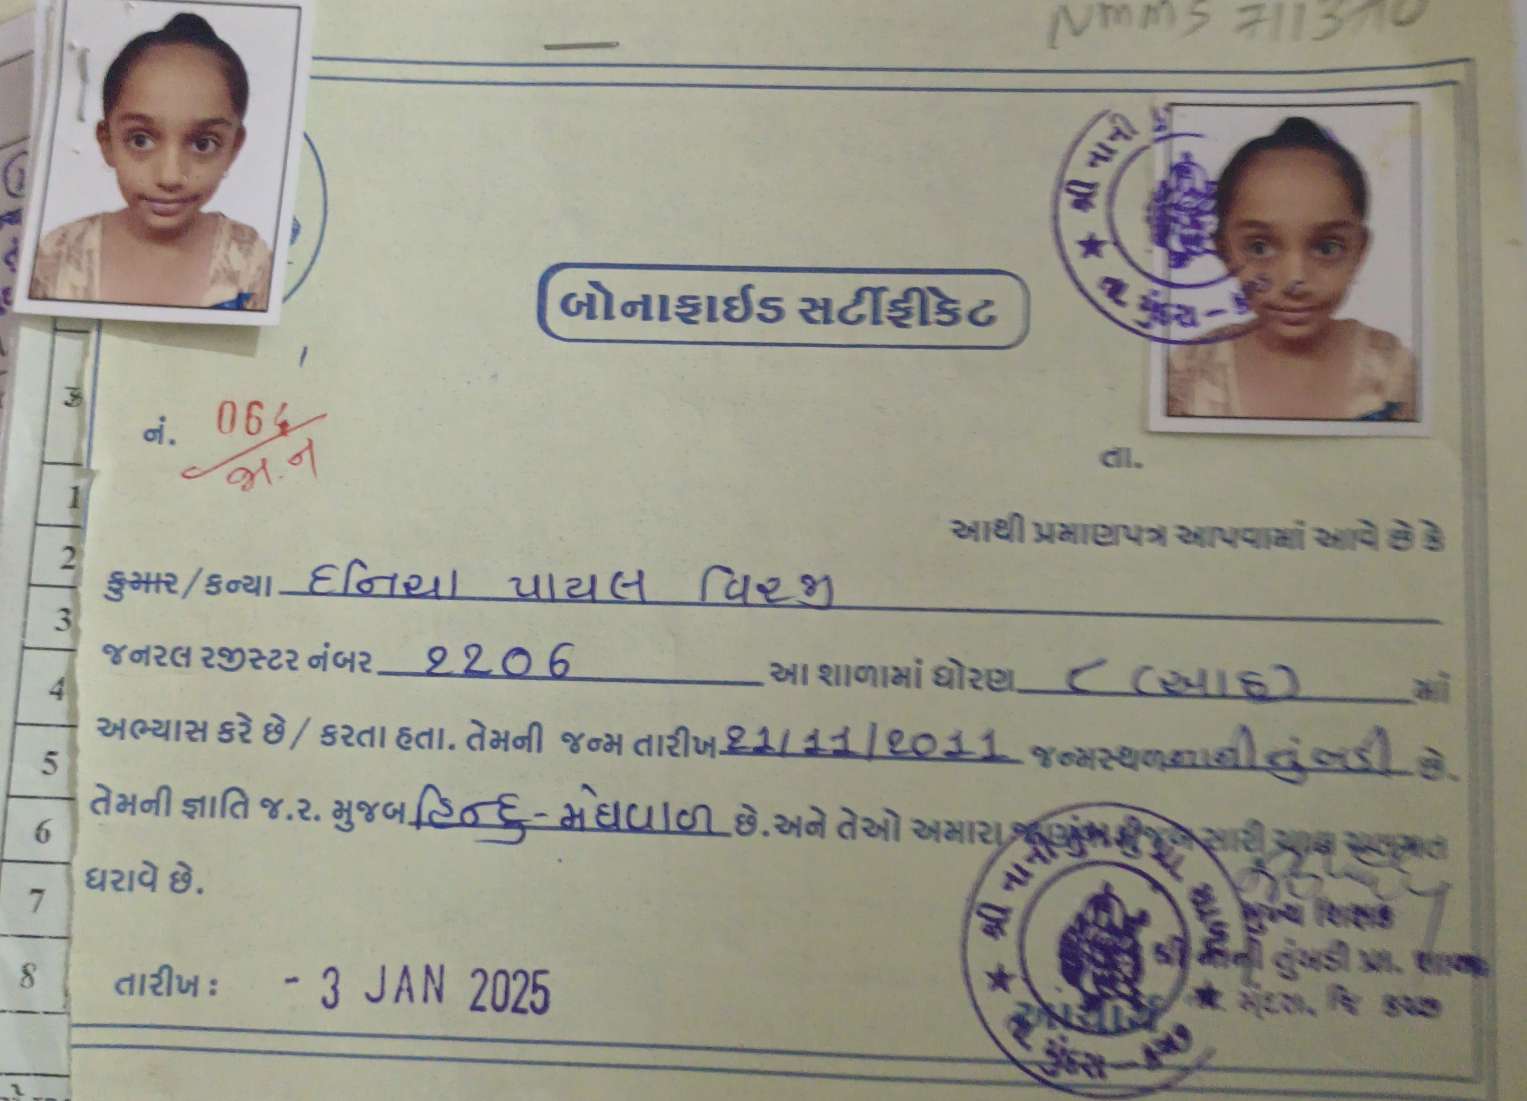 NMMS
બોનાફાઈડ સર્ટીફીકેટ
નં. 064
જા.ન
તા.
આથી પ્રમાણપત્ર આપવામાં આવે છે કે
કુમાર/કન્યા દનિચા પાયલ વિરજી
જનરલ રજીસ્ટર નંબર 2206 આ શાળામાં ધોરણ ૮ (આઠ) માં
અભ્યાસ કરે છે/ કરતા હતા. તેમની જન્મ તારીખ 21/11/2011 જન્મસ્થળ નાની તુંબડી છે.
તેમની જ્ઞાતિ જ.ર. મુજબ હિન્દુ-મેઘવાળ છે. અને તેઓ અમારા સારી
ધરાવે છે.
મુખ્ય શિક્ષક
શ્રી નાની તુંબડી પ્રા. શાળા
મુંદરા, જિ કચ્છ
તારીખ: - 3 JAN 2025
આચાર્ય
શ્રી નાની
તા. મુંદરા-કચ્છ
1
2
3
4
5
6
7
8